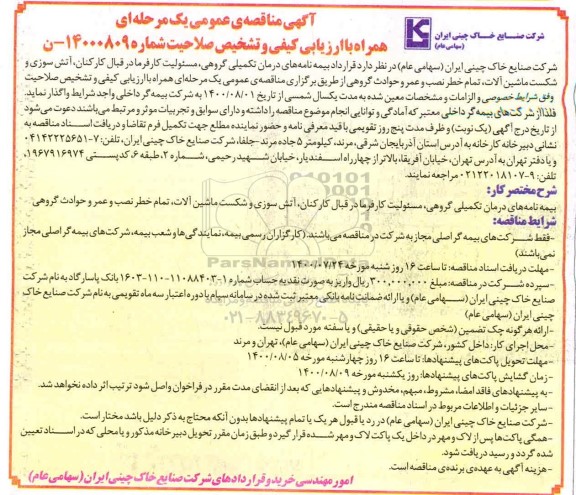 شرکت صنایع خاک چینی ایران
(سهامی عام)
آگهی مناقصه‌ی عمومی یک مرحله‌ای
همراه با ارزیابی کیفی و تشخیص صلاحیت شماره ۱۴۰۰۰۸۰۹-ن
شرکت صنایع خاک چینی ایران (سهامی عام) در نظر دارد قرارداد بیمه نامه‌های درمان تکمیلی گروهی، مسئولیت کارفرما در قبال کارکنان، آتش سوزی و
شکست ماشین آلات، تمام خطر نصب و عمر و حوادث گروهی از طریق برگزاری مناقصه‌ی عمومی یک مرحله‌ای همراه با ارزیابی کیفی و تشخیص صلاحیت
وفق شرایط خصوصی و الزامات و مشخصات معین شده به مدت یکسال شمسی از تاریخ ۱۴۰۰/۰۸/۰۱ به شرکت بیمه گر داخلی واجد شرایط واگذار نماید.
فلذا از شرکت‌های بیمه گر داخلی معتبر که آمادگی و توانایی انجام موضوع مناقصه را داشته و دارای سوابق و تجربیات موثر و مرتبط می‌باشند دعوت می‌شود
از تاریخ درج آگهی (یک نوبت) و ظرف مدت پنج روز تقویمی با قید معرفی نامه و حضور نماینده مطلع جهت تکمیل فرم تقاضا و دریافت اسناد مناقصه به
نشانی دبیرخانه کارخانه به آدرس استان آذربایجان شرقی، مرند، کیلومتر ۵ جاده مرند-جلفا، شرکت صنایع خاک چینی ایران، تلفن: ۷-۰۴۱۴۲۲۲۵۶۵۱
و یا دفتر تهران به آدرس تهران، خیابان آفریقا، بالاتر از چهارراه اسفندیار، خیابان شهید رحیمی، شماره ۲، طبقه ۶، کدپستی ۱۹۶۷۹۱۶۹۷۴،
تلفن: ۹-۰۲۱۲۲۰۱۸۱۰۷ مراجعه نمایند.
شرح مختصر کار:
بیمه نامه‌های درمان تکمیلی گروهی، مسئولیت کارفرما در قبال کارکنان، آتش سوزی و شکست ماشین آلات، تمام خطر نصب و عمر و حوادث گروهی
شرایط مناقصه:
-فقط شرکت‌های بیمه گر اصلی مجاز به شرکت در مناقصه می‌باشند. (کارگزاران رسمی بیمه، نمایندگی‌ها و شعب بیمه، شرکت‌های بیمه گر اصلی مجاز
نمی‌باشند)
-مهلت دریافت اسناد مناقصه: تا ساعت ۱۶ روز شنبه مورخه ۱۴۰۰/۰۷/۲۴
-سپرده شرکت در مناقصه: مبلغ ۳۰۰,۰۰۰,۰۰۰ ریال واریز به صورت نقد به حساب شماره ۱-۱۱۰۸۸۴۰۳-۱۱۰-۱۶۰۳ بانک پاسارگاد به نام شرکت
صنایع خاک چینی ایران (سهامی عام) و یا ارائه ضمانت نامه بانکی معتبر ثبت شده در سامانه سپام با دوره اعتبار سه ماه تقویمی به نام شرکت صنایع خاک
چینی ایران (سهامی عام)
-ارائه هرگونه چک تضمین (شخص حقوقی و یا حقیقی) و یا سفته مورد قبول نیست.
-محل اجرای کار: داخل کشور، شرکت صنایع خاک چینی ایران (سهامی عام)، تهران و مرند
-مهلت تحویل پاکت‌های پیشنهادها: تا ساعت ۱۶ روز چهارشنبه مورخه ۱۴۰۰/۰۸/۰۵
-زمان گشایش پاکت‌های پیشنهادها: روز یکشنبه مورخه ۱۴۰۰/۰۸/۰۹
-به پیشنهادهای فاقد امضا، مشروط، مبهم، مخدوش و پیشنهادهایی که بعد از انقضای مدت مقرر در فراخوان واصل شود ترتیب اثر داده نخواهد شد.
-سایر جزئیات و اطلاعات مربوط در اسناد مناقصه مندرج است.
-شرکت صنایع خاک چینی ایران (سهامی عام) در رد یا قبول هر یک یا تمام پیشنهادها بدون آنکه محتاج به ذکر دلیل باشد مختار است.
-همگی پاکت‌ها پس از لاک و مهر در داخل یک پاکت لاک و مهر شده قرار گیرد و طبق زمان مقرر تحویل دبیرخانه مذکور و یا محلی که در اسناد تعیین
شده گردد و رسید دریافت شود.
-هزینه آگهی به عهده‌ی برنده‌ی مناقصه است.
امور مهندسی خرید و قراردادهای شرکت صنایع خاک چینی ایران (سهامی عام)
ParsNamadData
۰۲۱-۸۸۳۴۹۶۷۰-۵